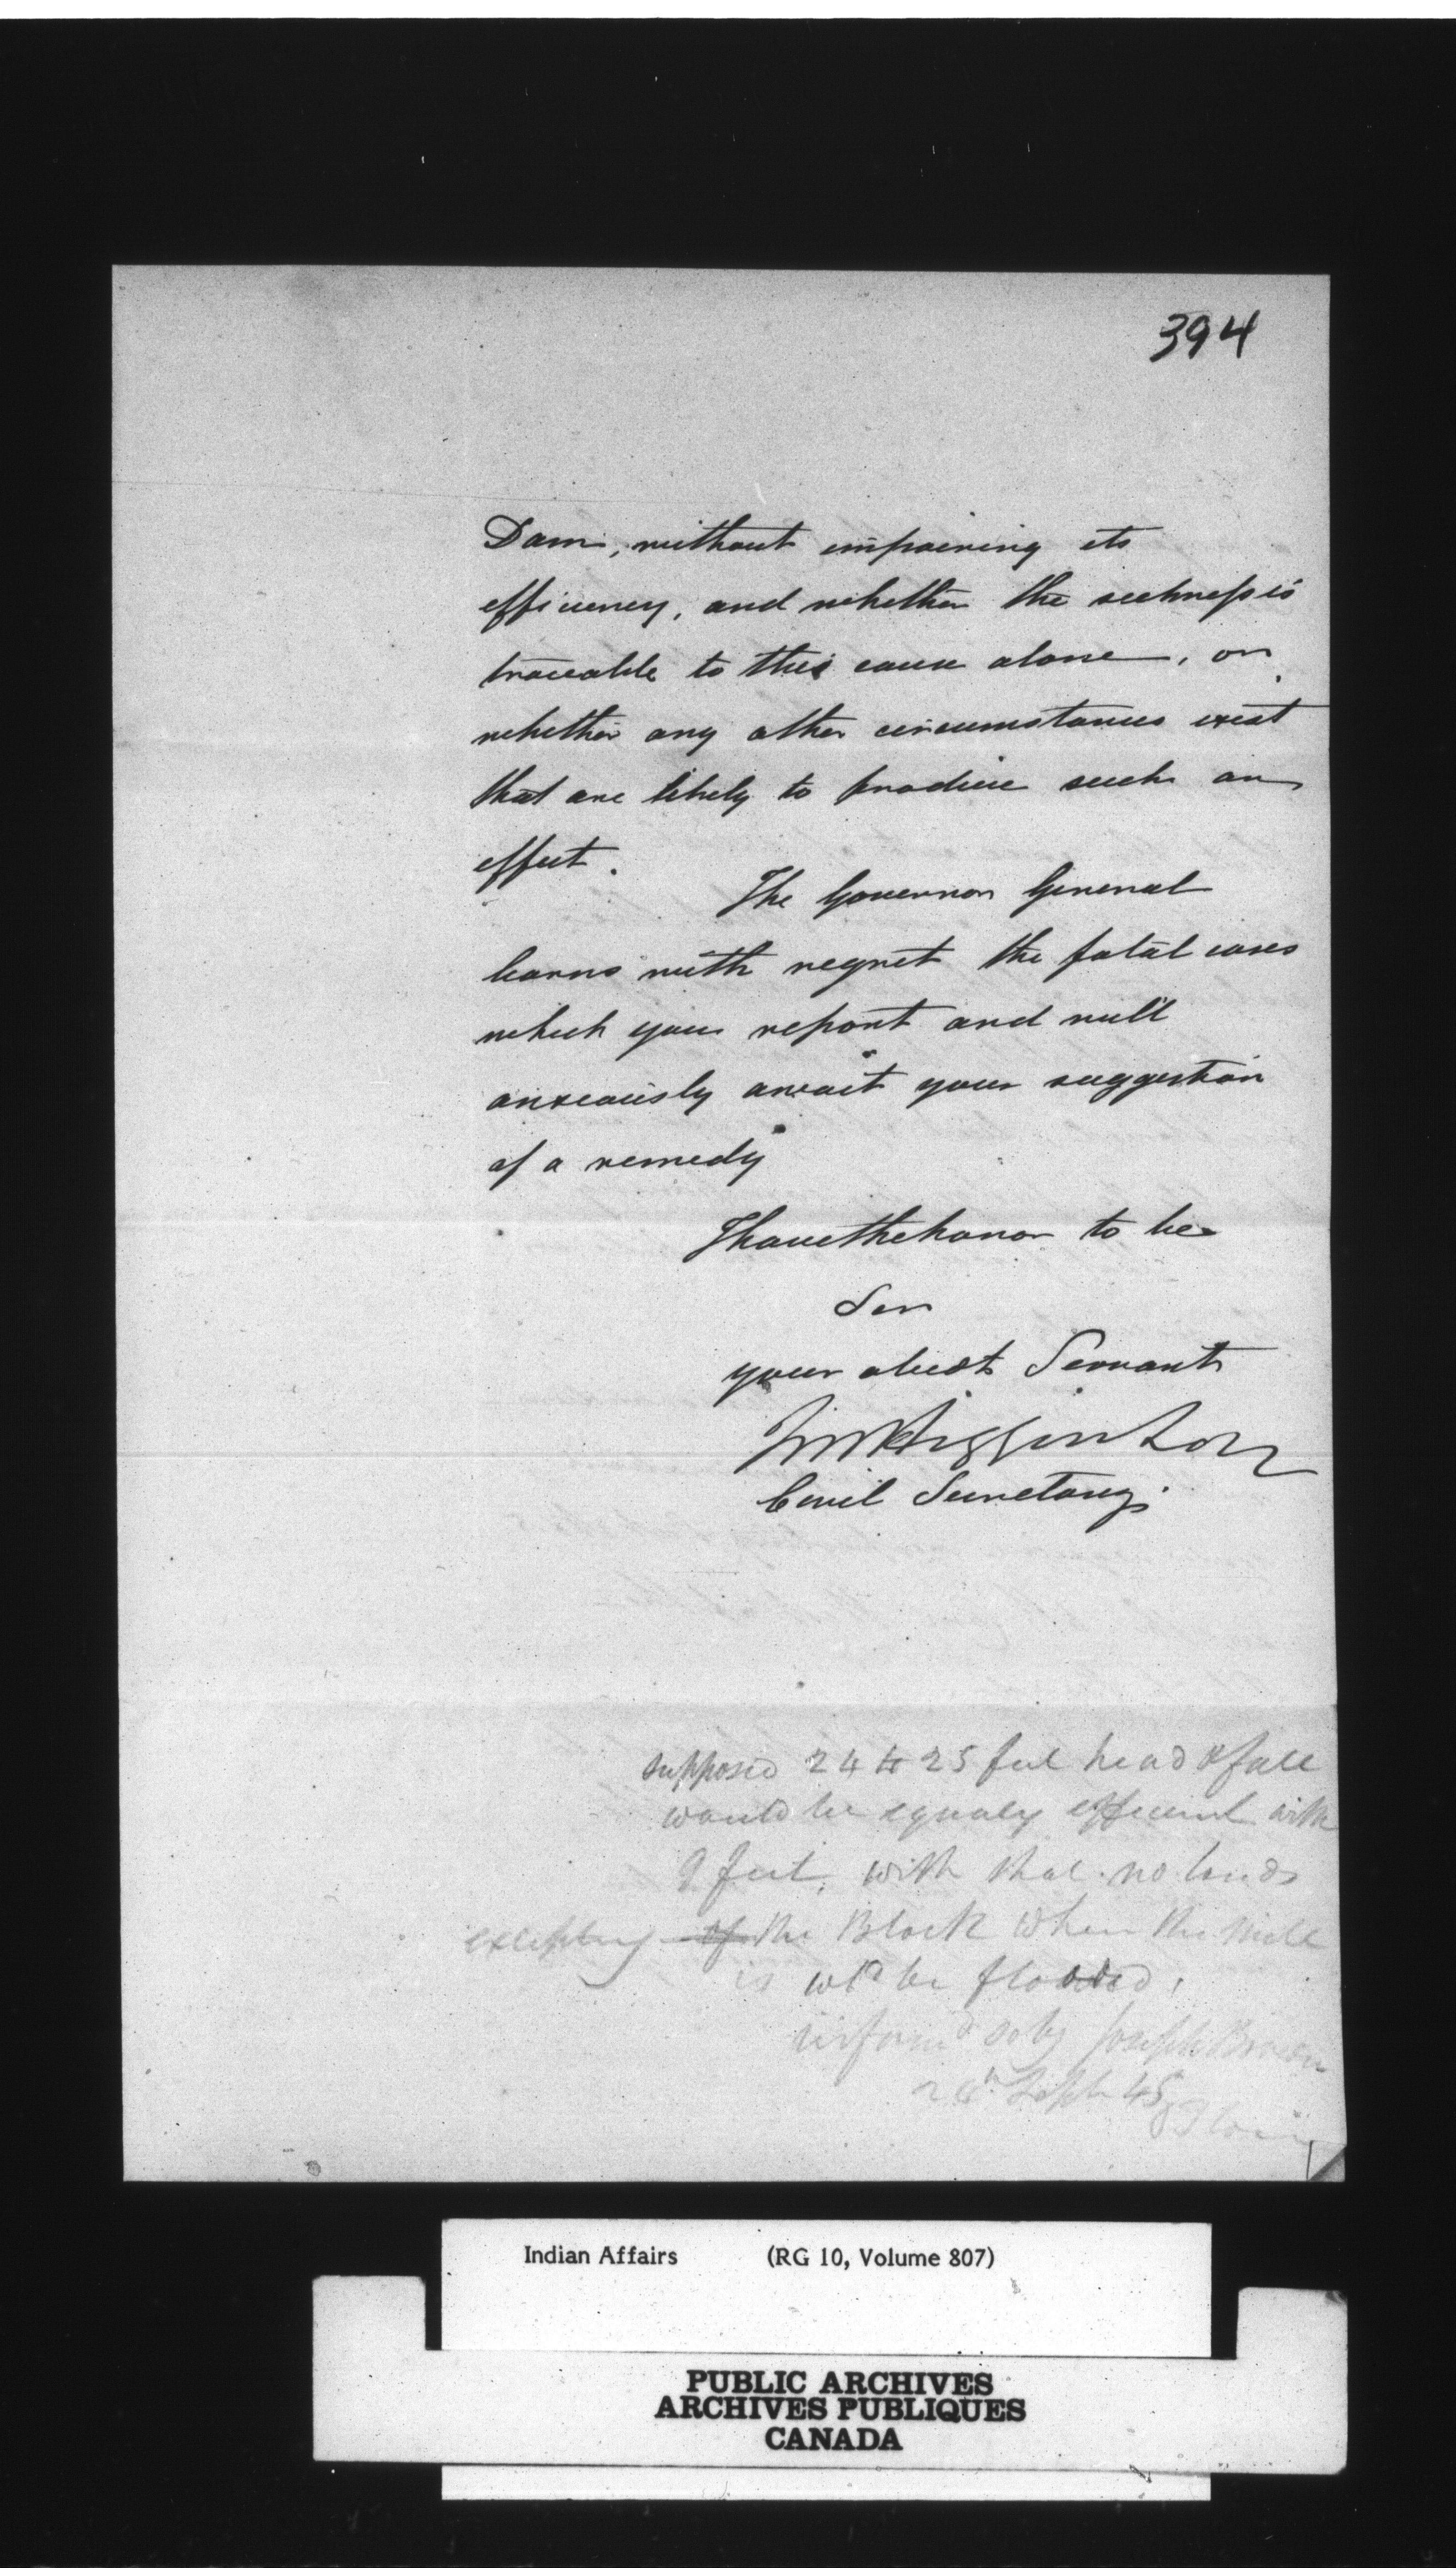 394
Dam, without impairing its
efficiency, and whether the sickness is
traceable to this cause alone, or
whether any other circumstances exist
that are likely to produce such an
effect.
The Governor General
learns with regret the fatal cases
which you report and will
anxiously await your suggestion
of a remedy
I have the honor to be
Sir
your obedt Servant
JM Higginson
Civil Secretary.
supposed 24 to 25 feet head & fall
would be equaly efficient with
9 feet, with that no lands
excepting of the Block when the Mill
is wld be flooded,
inform'd so by Joseph Brown
Septr 45
Indian Affairs (RG 10, Volume 807)
PUBLIC ARCHIVES
ARCHIVES PUBLIQUES
CANADA